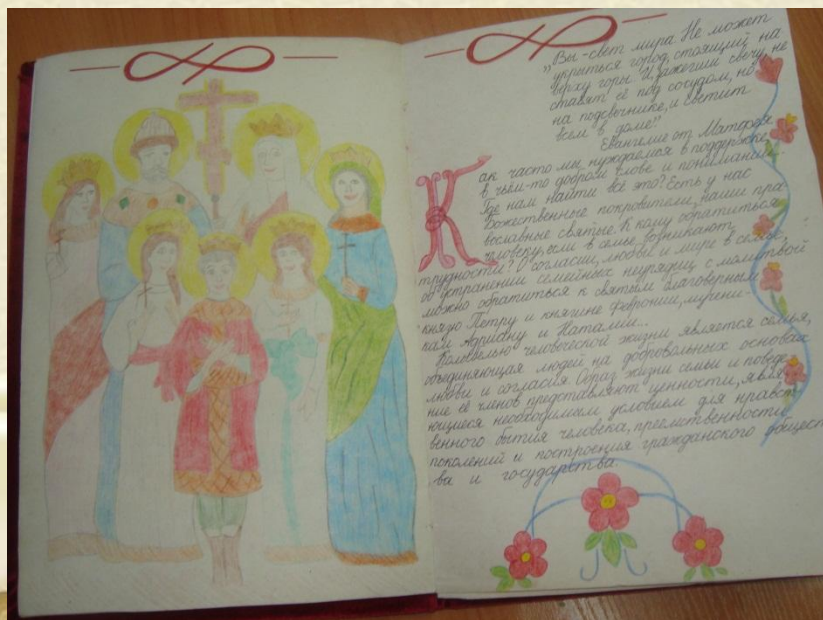 „Вы - свет мира. Не может
укрыться город, стоящий на
верху горы. И зажегши свечу, не
ставят её под сосудом, но
на подсвечнике, и светит
всем в доме!"
Евангелие от Матфея
Как часто мы нуждаемся в поддержке,
в чьём-то добром слове и понимании.
Где нам найти всё это? Есть у нас
Божественные покровители, наши пра-
вославные святые. К кому обратиться
человеку, если в семье возникают
трудности? О согласии, любви и мире в семье,
об устранении семейных неурядиц с молитвой
можно обратиться к святым благоверным
князю Петру и княгине Февронии, мучени-
кам Адриану и Наталии...
Колыбелью человеческой жизни является семья,
объединяющая людей на добровольных основах
любви и согласия. Образ жизни семьи и поведе-
ние её членов представляют ценности, явля-
ющиеся необходимым условием для нравст-
венного бытия человека, преемственности
поколений и построения гражданского общест-
ва и государства.